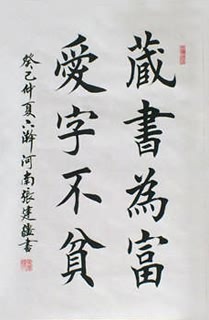 藏書為富
愛字不貧
癸巳仲夏河南張建書